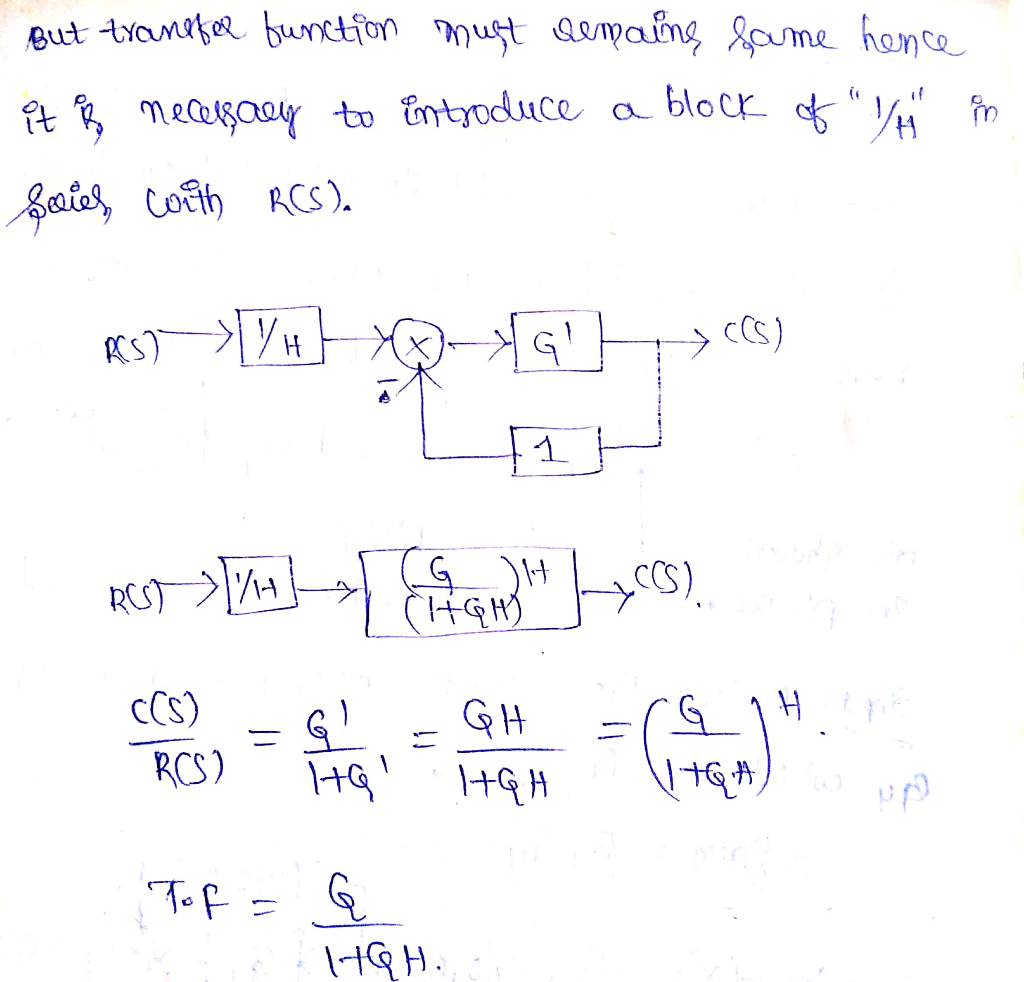 But transfer function must remains same hence
it is necessary to introduce a block of "1/H" in
series with R(S).
R(S) 1/H X G' C(S)
-
1
R(S) 1/H (G/(1+GH))H C(S).
C(S)/R(S) = G'/(1+G') = GH/(1+GH) = (G/(1+GH))H.
T.f = G/(1+GH).